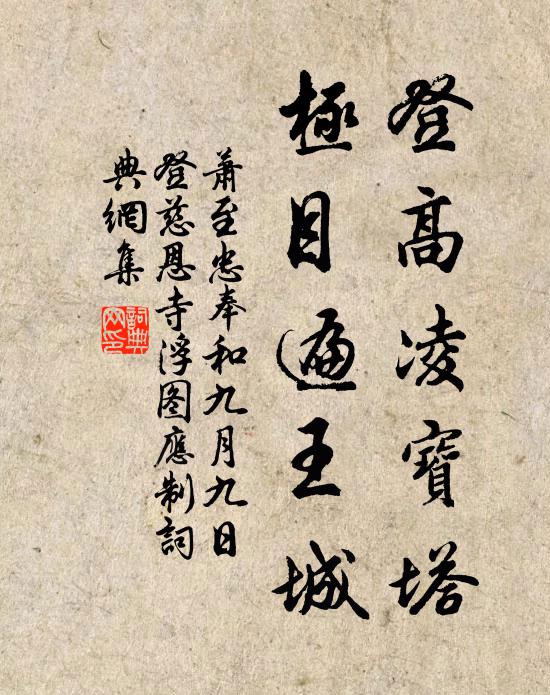 登高凌寶塔
極目遍王城
蕭至忠奉和九月九日
登慈恩寺浮图應制詞
典網集
詞典
网印